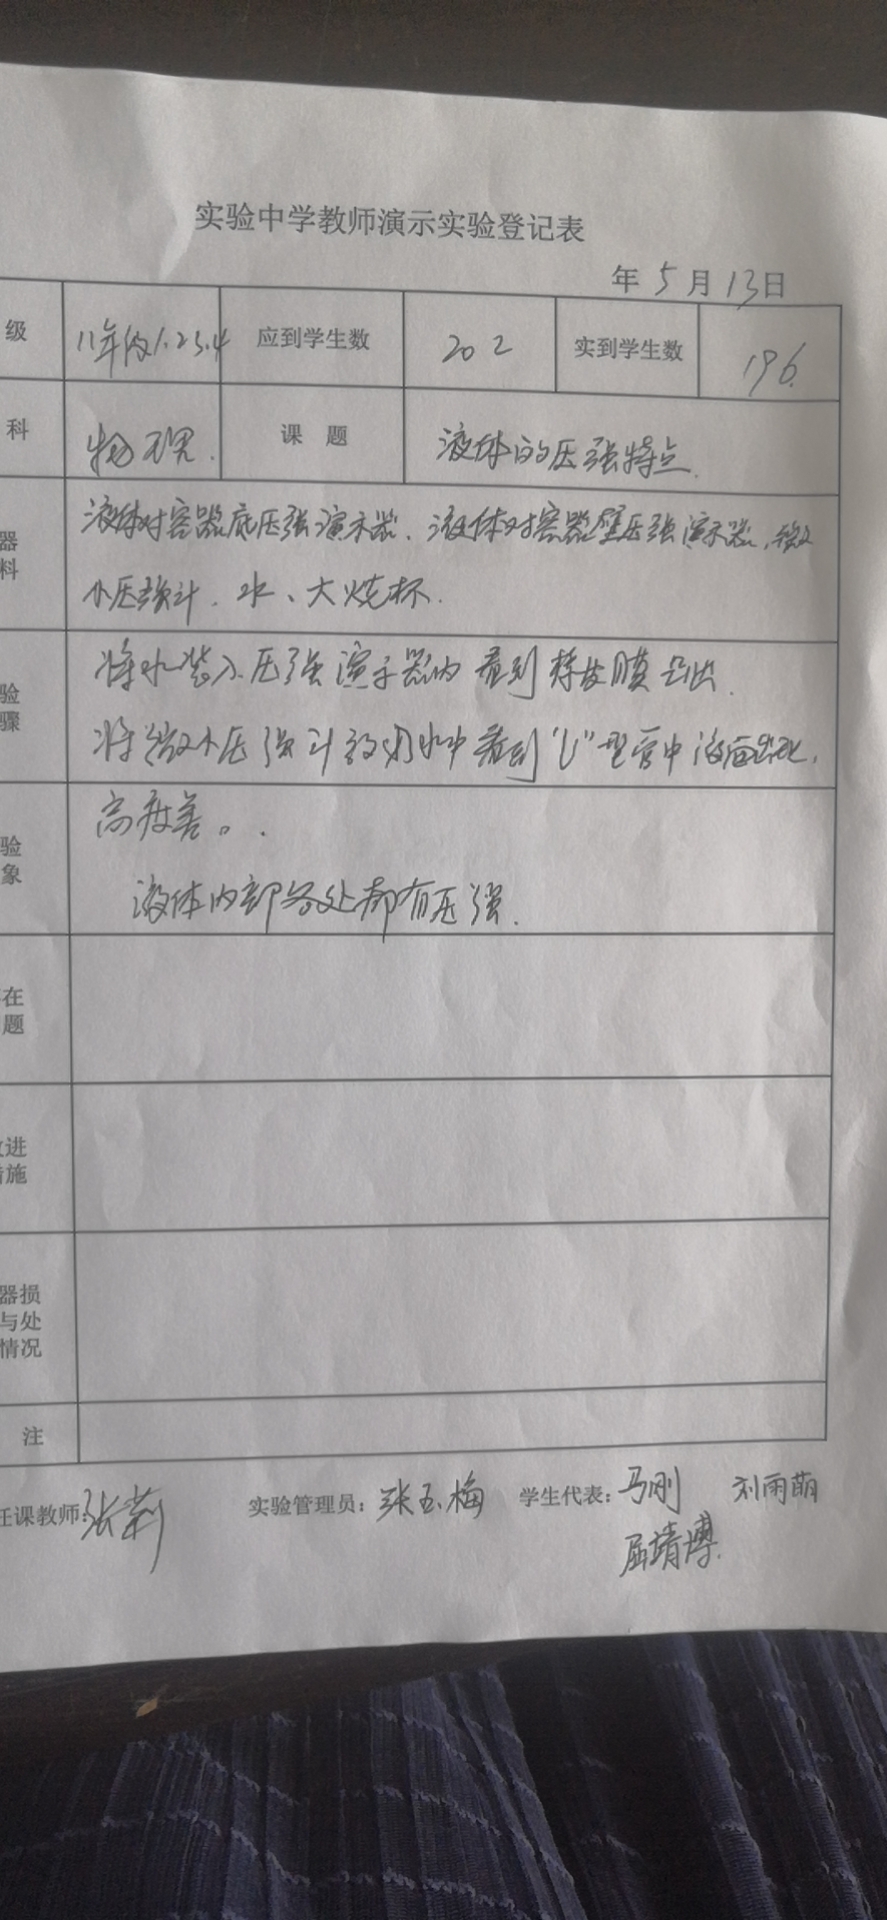 实验中学教师演示实验登记表
年 5 月 13日
级 11年级1.2.3.4 应到学生数 202 实到学生数 196
科 物理. 课 题 液体的压强特点.
器
料
液体对容器底压强演示器. 液体对容器壁压强演示器, 微
小压强计. 水、大烧杯.
验
骤
将水装入压强演示器内 看到 橡皮膜凸出.
将微小压强计放 水中看到"U"型管中液面出现.
验
象
高度差。.
液体内部各处都有压强.
在
题
进
施
器损
与处
情况
注
任课教师: 张莉 实验管理员: 张玉梅 学生代表: 马刚 刘雨萌
屈靖博.